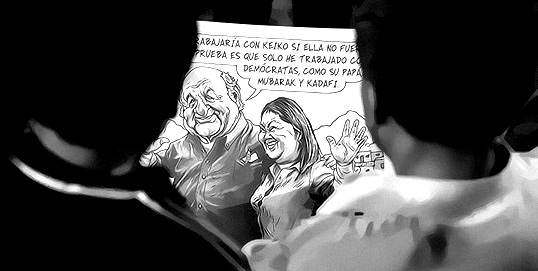 RABAJARÍA CON KEIKO SI ELLA NO FUER
PRUEBA ES QUE SOLO HE TRABAJADO CO
DEMÓCRATAS, COMO SU PAPÁ
MUBARAK Y KADAFI.